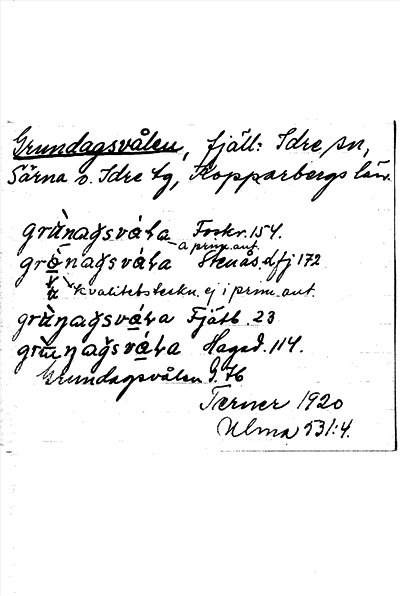 Grundagsvålen, fjäll: Idre sn,
Särna o. Idre tg, Kopparbergs län.
grùnagsváɫa Forskr. 154.
a prim. aut.
grò̱nagsváɫa Stenås. dfj 172
u kvalitetsteckn. ej i prim. aut.
grùŋagsvá̱ɫa Fjätb. 23
grùŋagsvá̱ɫa Hagað. 114.
Grundagsvålen G. Kb
Terner 1920
Ulma 531:4.